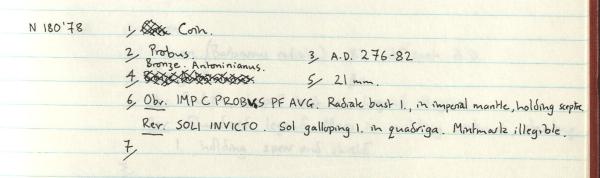 N 180'78 1, Coin.
2, Probus. 3, A.D. 276-82
Bronze. Antoninianus.
4, 5, 21 mm.
6, Obv. IMP C PROBVS PF AVG. Radiate bust l., in imperial mantle, holding sceptre.
Rev. SOLI INVICTO. Sol galloping l. in quadriga. Mintmark illegible.
7,